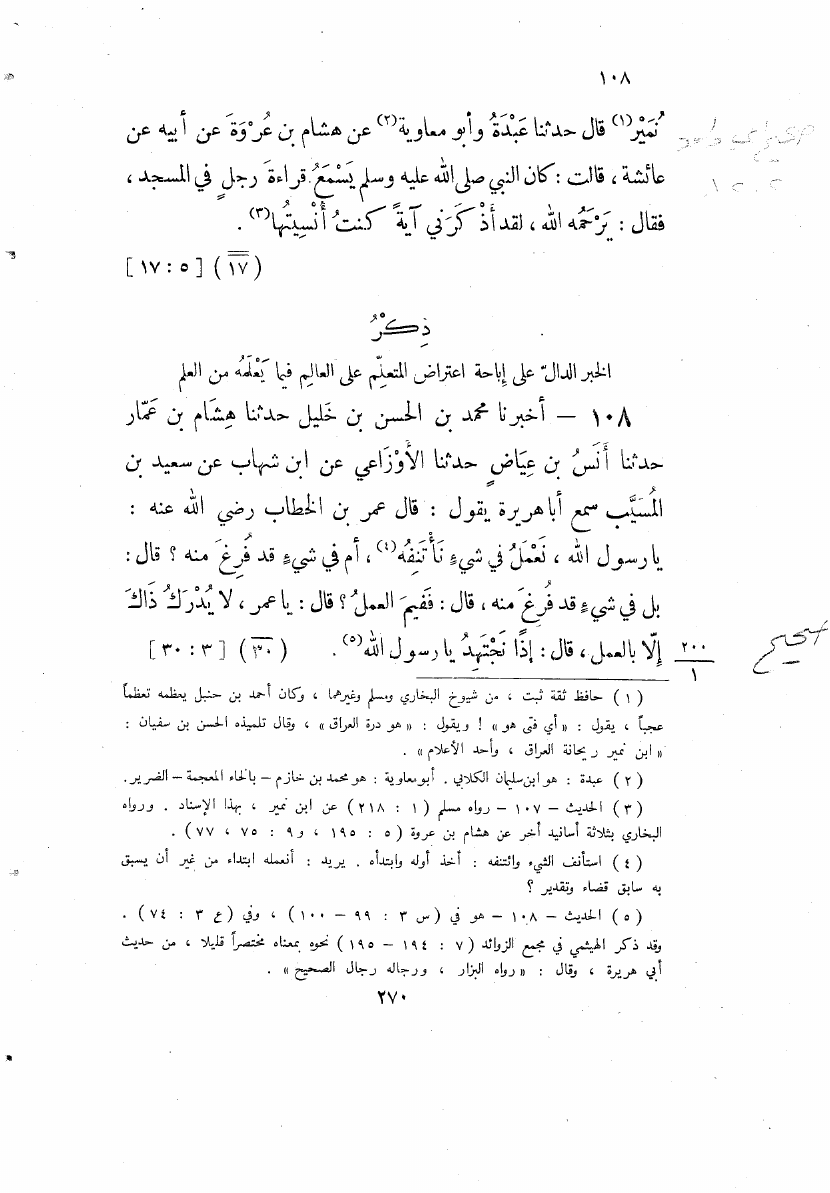 ١٠٨
نُمَيْرٍ(١) قال حدثنا عَبْدَةُ وأبو معاوية(٢) عن هشام بن عُرْوَةَ عن أبيه عن
عائشة ، قالت : كان النبي صلى الله عليه وسلم يَسْمَعُ قراءةَ رجلٍ في المسجد ،
فقال : يَرْحَمُه الله ، لقد أَذْكَرَني آيةً كنتُ أُنْسِيتُها(٣) .
(١٧) [٥ : ١٧]
ذِكْرُ
الخبر الدالّ على إباحة اعتراض المتعلِّم على العالِم فيما يَعْلَمُه من العلم
١٠٨ – أخبرنا محمد بن الحسن بن خليل حدثنا هِشَام بن عَمَّار
حدثنا أَنَسُ بن عِيَاضٍ حدثنا الأَوْزَاعي عن ابن شهاب عن سعيد بن
المُسَيَّبِ سمع أبا هريرة يقول : قال عمر بن الخطاب رضي الله عنه :
يا رسول الله ، نَعْمَلُ في شيءٍ نَأْتَنِفُه(٤) ، أم في شيءٍ قد فُرِغَ منه ؟ قال :
بل في شيءٍ قد فُرِغَ منه ، قال : فَفِيمَ العملُ ؟ قال : يا عمر ، لا يُدْرَكُ ذَاكَ
إلّا بالعمل ، قال : إذًا نَجْتَهِدُ يا رسول الله(٥) . (٣٠) [٣ : ٣٠]
٢٠٠
١
صحيح
(١) حافظ ثقة ثبت ، من شيوخ البخاري ومسلم وغيرهما ، وكان أحمد بن حنبل يعظمه تعظيماً
عجباً ، يقول : « أي فتى هو » ! ويقول : « هو درة العراق » ، وقال تلميذه الحسن بن سفيان :
« ابن نمير ريحانة العراق ، وأحد الأعلام » .
(٢) عبدة : هو ابن سليمان الكلابي . أبو معاوية : هو محمد بن خازم – بالخاء المعجمة – الضرير.
(٣) الحديث – ١٠٧ – رواه مسلم (١ : ٢١٨) عن ابن نمير ، بهذا الإسناد . ورواه
البخاري بثلاثة أسانيد أخر عن هشام بن عروة (٥ : ١٩٥ ، و٩ : ٧٥ ، ٧٧) .
(٤) استأنف الشيء وائتنفه : أخذ أوله وابتدأه . يريد : أنعمله ابتداء من غير أن يسبق
به سابق قضاء وتقدير ؟
(٥) الحديث – ١٠٨ – هو في (س ٣ : ٩٩ – ١٠٠) ، وفي (ع ٣ : ٧٤) .
وقد ذكر الهيثمي في مجمع الزوائد (٧ : ١٩٤ – ١٩٥) نحوه بمعناه مختصراً قليلا ، من حديث
أبي هريرة ، وقال : « رواه البزار ، ورجاله رجال الصحيح » .
٢٧٠